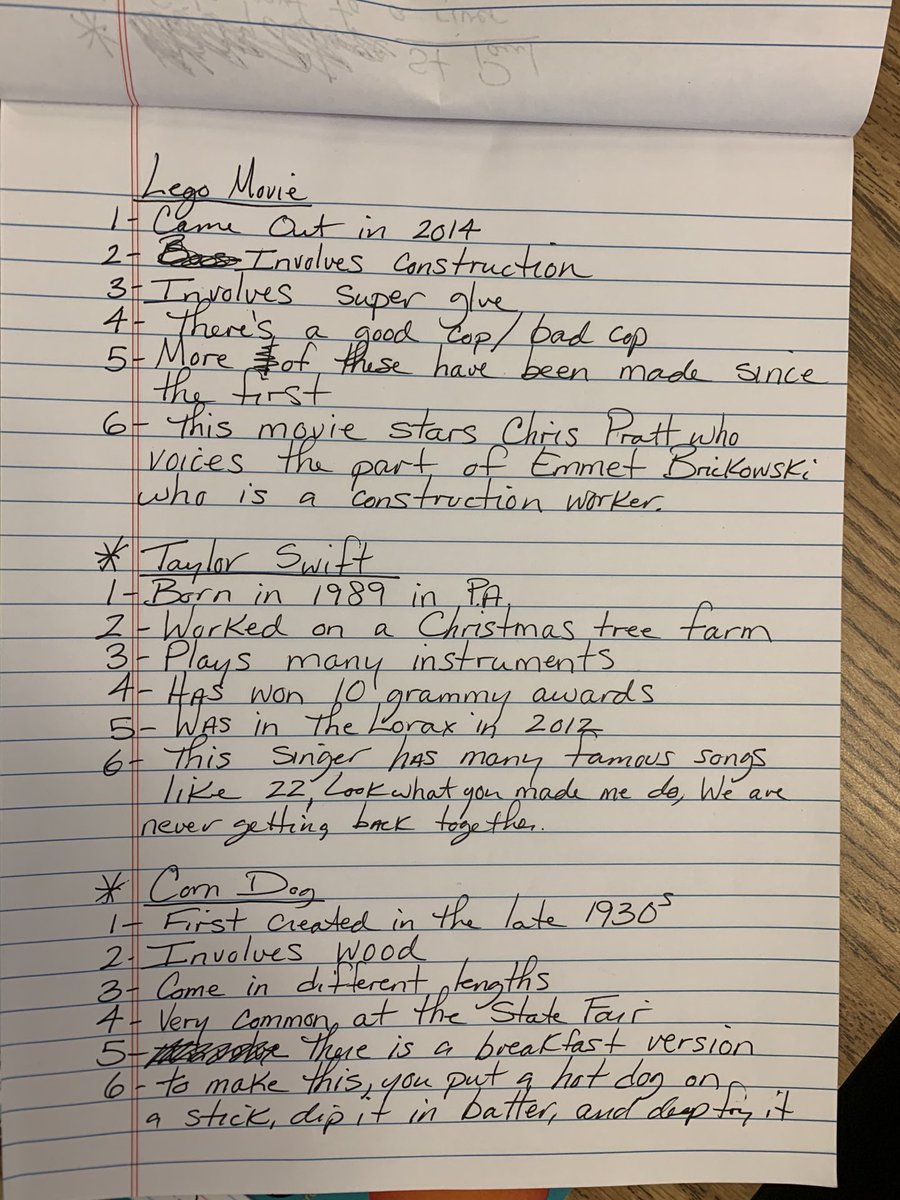 St Paul
Lego Movie
1- Came Out in 2014
2- Involves Construction
3- Involves super glue
4- There's a good cop/bad cop
5- More of these have been made since
the first
6- This movie stars Chris Pratt who
voices the part of Emmet Brickowski
who is a construction worker.
* Taylor Swift
1- Born in 1989 in P.A.
2- Worked on a Christmas tree farm
3- Plays many instruments
4- HAS won 10 grammy awards
5- WAS in The Lorax in 2012
6- This singer HAS many famous songs
like 22, Look what you made me do, We are
never getting back together.
* Corn Dog
1- First created in the late 1930s
2- Involves wood
3- Come in different lengths
4- Very common at the State Fair
5- There is a breakfast version
6- to make this, you put a hot dog on
a stick, dip it in batter, and deep fry it